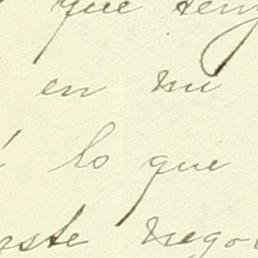 que teng
en mi
lo que
este nego